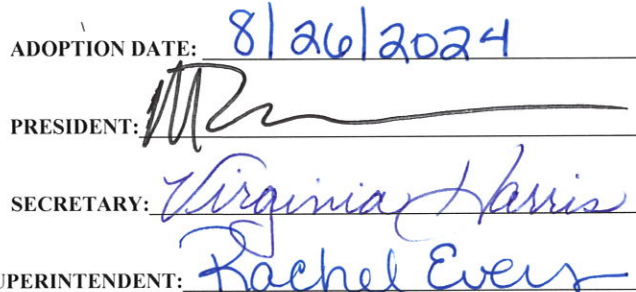 ADOPTION DATE: 8/26/2024
PRESIDENT:
SECRETARY: Virginia Harris
UPERINTENDENT: Rachel Evers